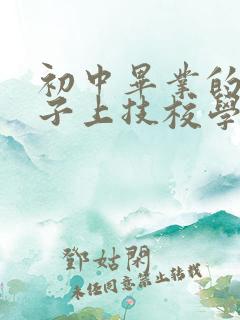 初中畢業的
子上技校學
鄧姑閑
未經同意禁止轉載